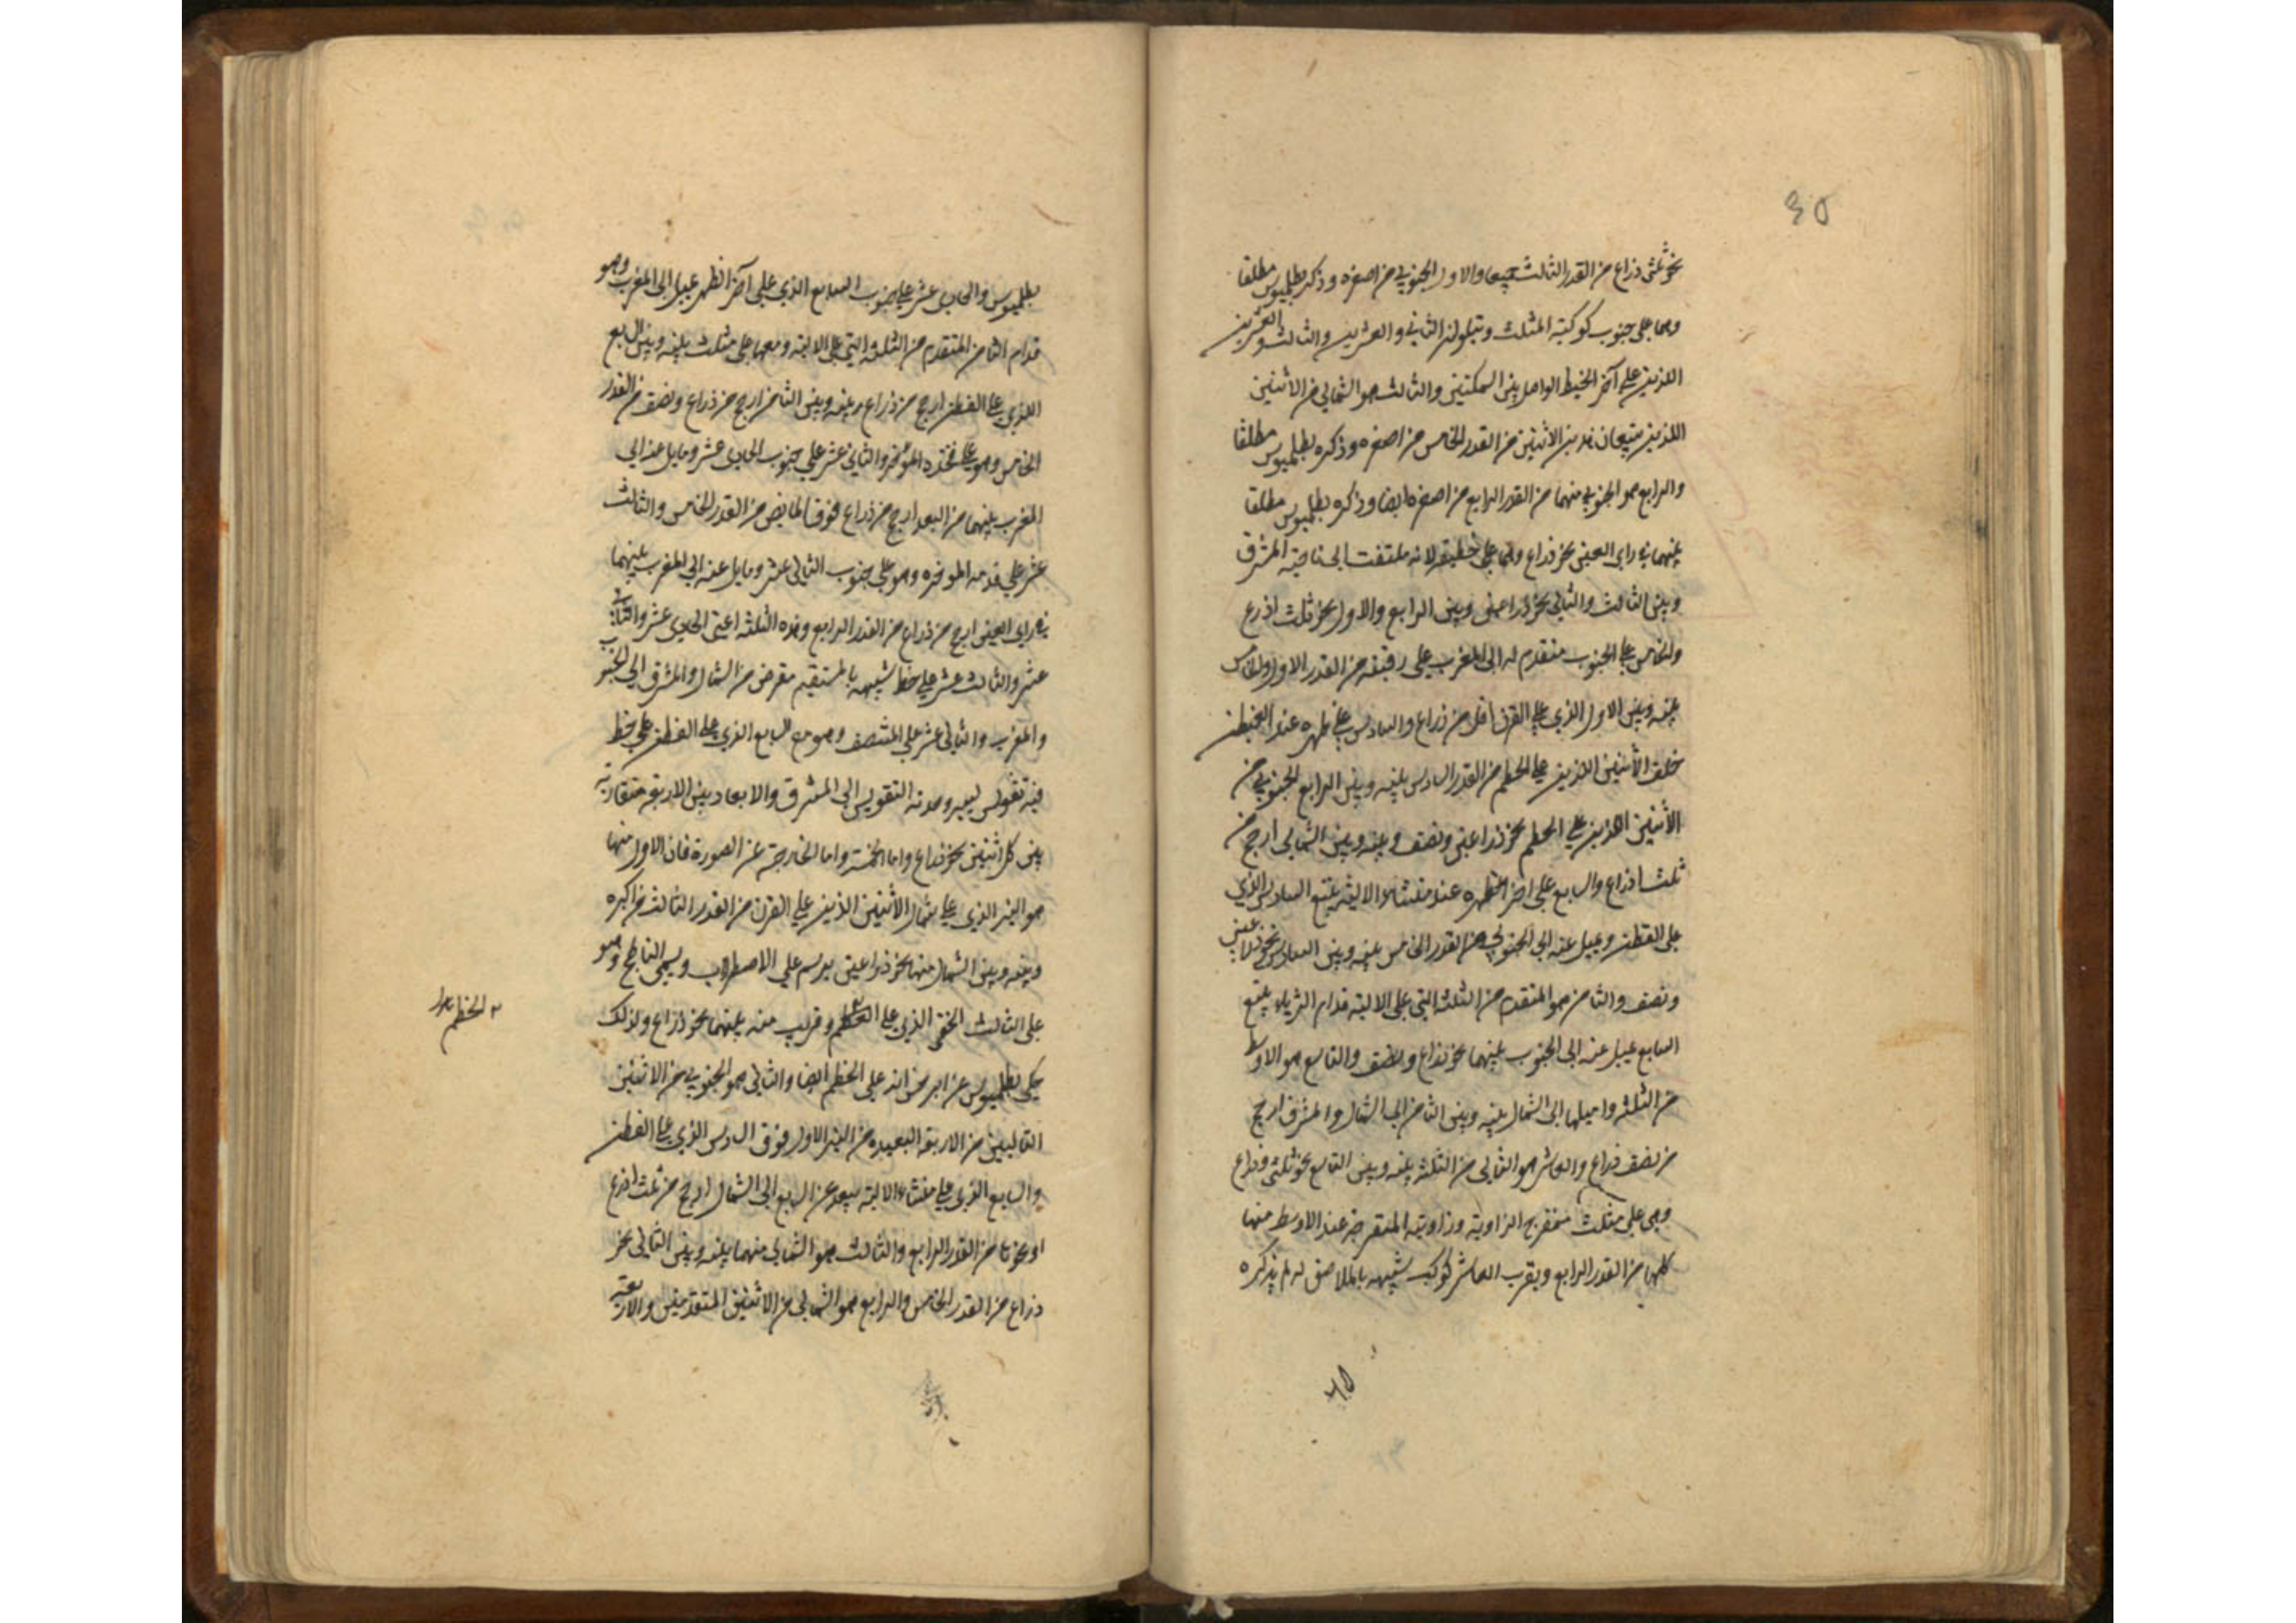 ٤٥
نحو ثلثي ذراع من القدر الثالث جميعا والاول الجنوبي من اصغره وذكر بطلميوس مطلقا
وهما على جنوب كوكبة المثلث ويتلوان الثاني والعشرين والثالث والعشرين
اللذين على آخر الخيط الواصل بين السمكتين والثالث هو الشمالي من الاثنين
اللذين يتبعان هذين الاثنين من القدر الخامس من اصغره وذكره بطلميوس مطلقا
والرابع هو الجنوبي منهما من القدر الرابع من اصغره ايضا وذكره بطلميوس مطلقا
بينهما في راى العين نحو ذراع وهما على خطمه لانه ملتفت الى ناحية المشرق
وبين الثالث والثاني نحو ذراعين وبين الرابع والاول نحو ثلث اذرع
والخامس على الجنوب متقدم له الى المغرب على رقبته من القدر الاول والخامس
بينه وبين الاول الذي على القرن اقل من ذراع والسادس على ظهره عند القطن
خلف الاثنين اللذين على الخطم من القدر السادس بينه وبين الرابع الجنوبي من
الاثنين اللذين على الخطم نحو ذراعين ونصف وبينه وبين الشمالي ارجح من
ثلث اذرع والسابع على اخر الظهره عند منشاء الالية يتبع السادس الذي
على القطن ويميل عنه الى الجنوب من القدر الخامس بينه وبين السادس نحو ذراعين
ونصف والثامن هو المتقدم من الثلثة التي على الالية قدام الثريا يتبع
السابع يميل عنه الى الجنوب بينهما نحو ذراع ونصف والتاسع هو الاوسط
من الثلثة واميلها الى الشمال بينه وبين الثامن الى الشمال والمشرق ارجح
من نصف ذراع والعاشر هو التالي من الثلثة بينه وبين التاسع نحو ثلثي ذراع
وهي على مثلث منفرج الزاوية وزاويته المنفرجة عند الاوسط منها
كلها من القدر الرابع وبقرب العاشر كوكب شبيه بالملاصق له لم يذكره
بطلميوس والحادى عشر على جنوب السابع الذي على آخر الظهر يميل الى المغرب وهو
قدام الثامن المتقدم من الثلثة التي على الالية ومعها على مثلث بينه وبين السابع
الذي على القطن ارجح من ذراع وبينه وبين الثامن ارجح من ذراع ونصف من القدر
الخامس وهو على فخذه المؤخر والثاني عشر على جنوب الحادى عشر ومايل عنه الى
المغرب بينهما من البعد ارجح من ذراع فوق المابض من القدر الخامس والثالث
عشر على قدمه الموخره وهو على جنوب الثاني عشر ومايل عنه الى المغرب بينهما
في راى العين ارجح من ذراع من القدر الرابع وهذه الثلثة اعني الحادى عشر والثاني
عشر والثالث عشر على خط شبيه بالمستقيم مقوس من الشمال والمشرق الى الجنوب
والمغرب والثاني عشر على المنتصف وهو مع السابع الذي على القطن على خط
فيه تقويس يسير وحدبة التقويس الى المشرق والابعاد بين الاربعة متقاربة
بين كل اثنين نحو ذراع واما الخمسة واما الخارجة عن الصورة فان الاول منها
هو النير الذي على شمال الاثنين الذين على القرن من القدر الثالث من اكبره
وبينه وبين الشمال منهما نحو ذراعين يرسم على الاصطرلاب ويسمى الناطح وهو
على الثالث الخفي الذي على الخطم وقريب منه بينهما نحو ذراع ولذلك
حكى بطلميوس عن ابرخس انه على الخطم ايضا والثاني هو الجنوبي من الاثنين
التاليين من الاربعة البعيده من النير الاول فوق السادس الذي على القطن
والسابع الذي على منشاء الالية يبعد عن السابع الى الشمال ارجح من ثلث اذرع
او نحوها من القدر الرابع والثالث هو الشمالي منهما بينه وبين الثاني نحو
ذراع من القدر الخامس والرابع هو الشمالي من الاثنين المتقدمين والاربعة
الخطم